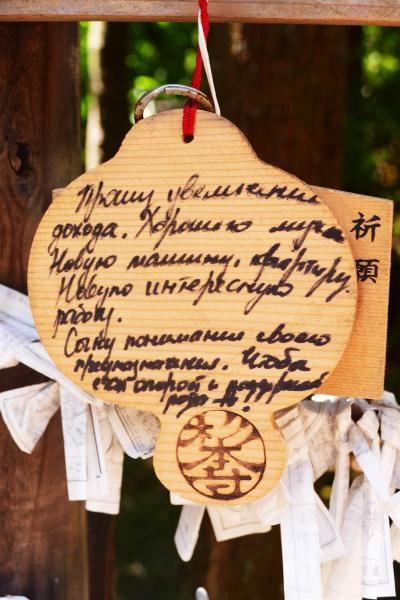 Прошу увеличения
дохода. Хорошего мужа
Новую машину, квартиру.
Новую интересную
работу.
Сыну понимания своего
предназначения. Чтобы
стал опорой и поддержкой
рода
祈願